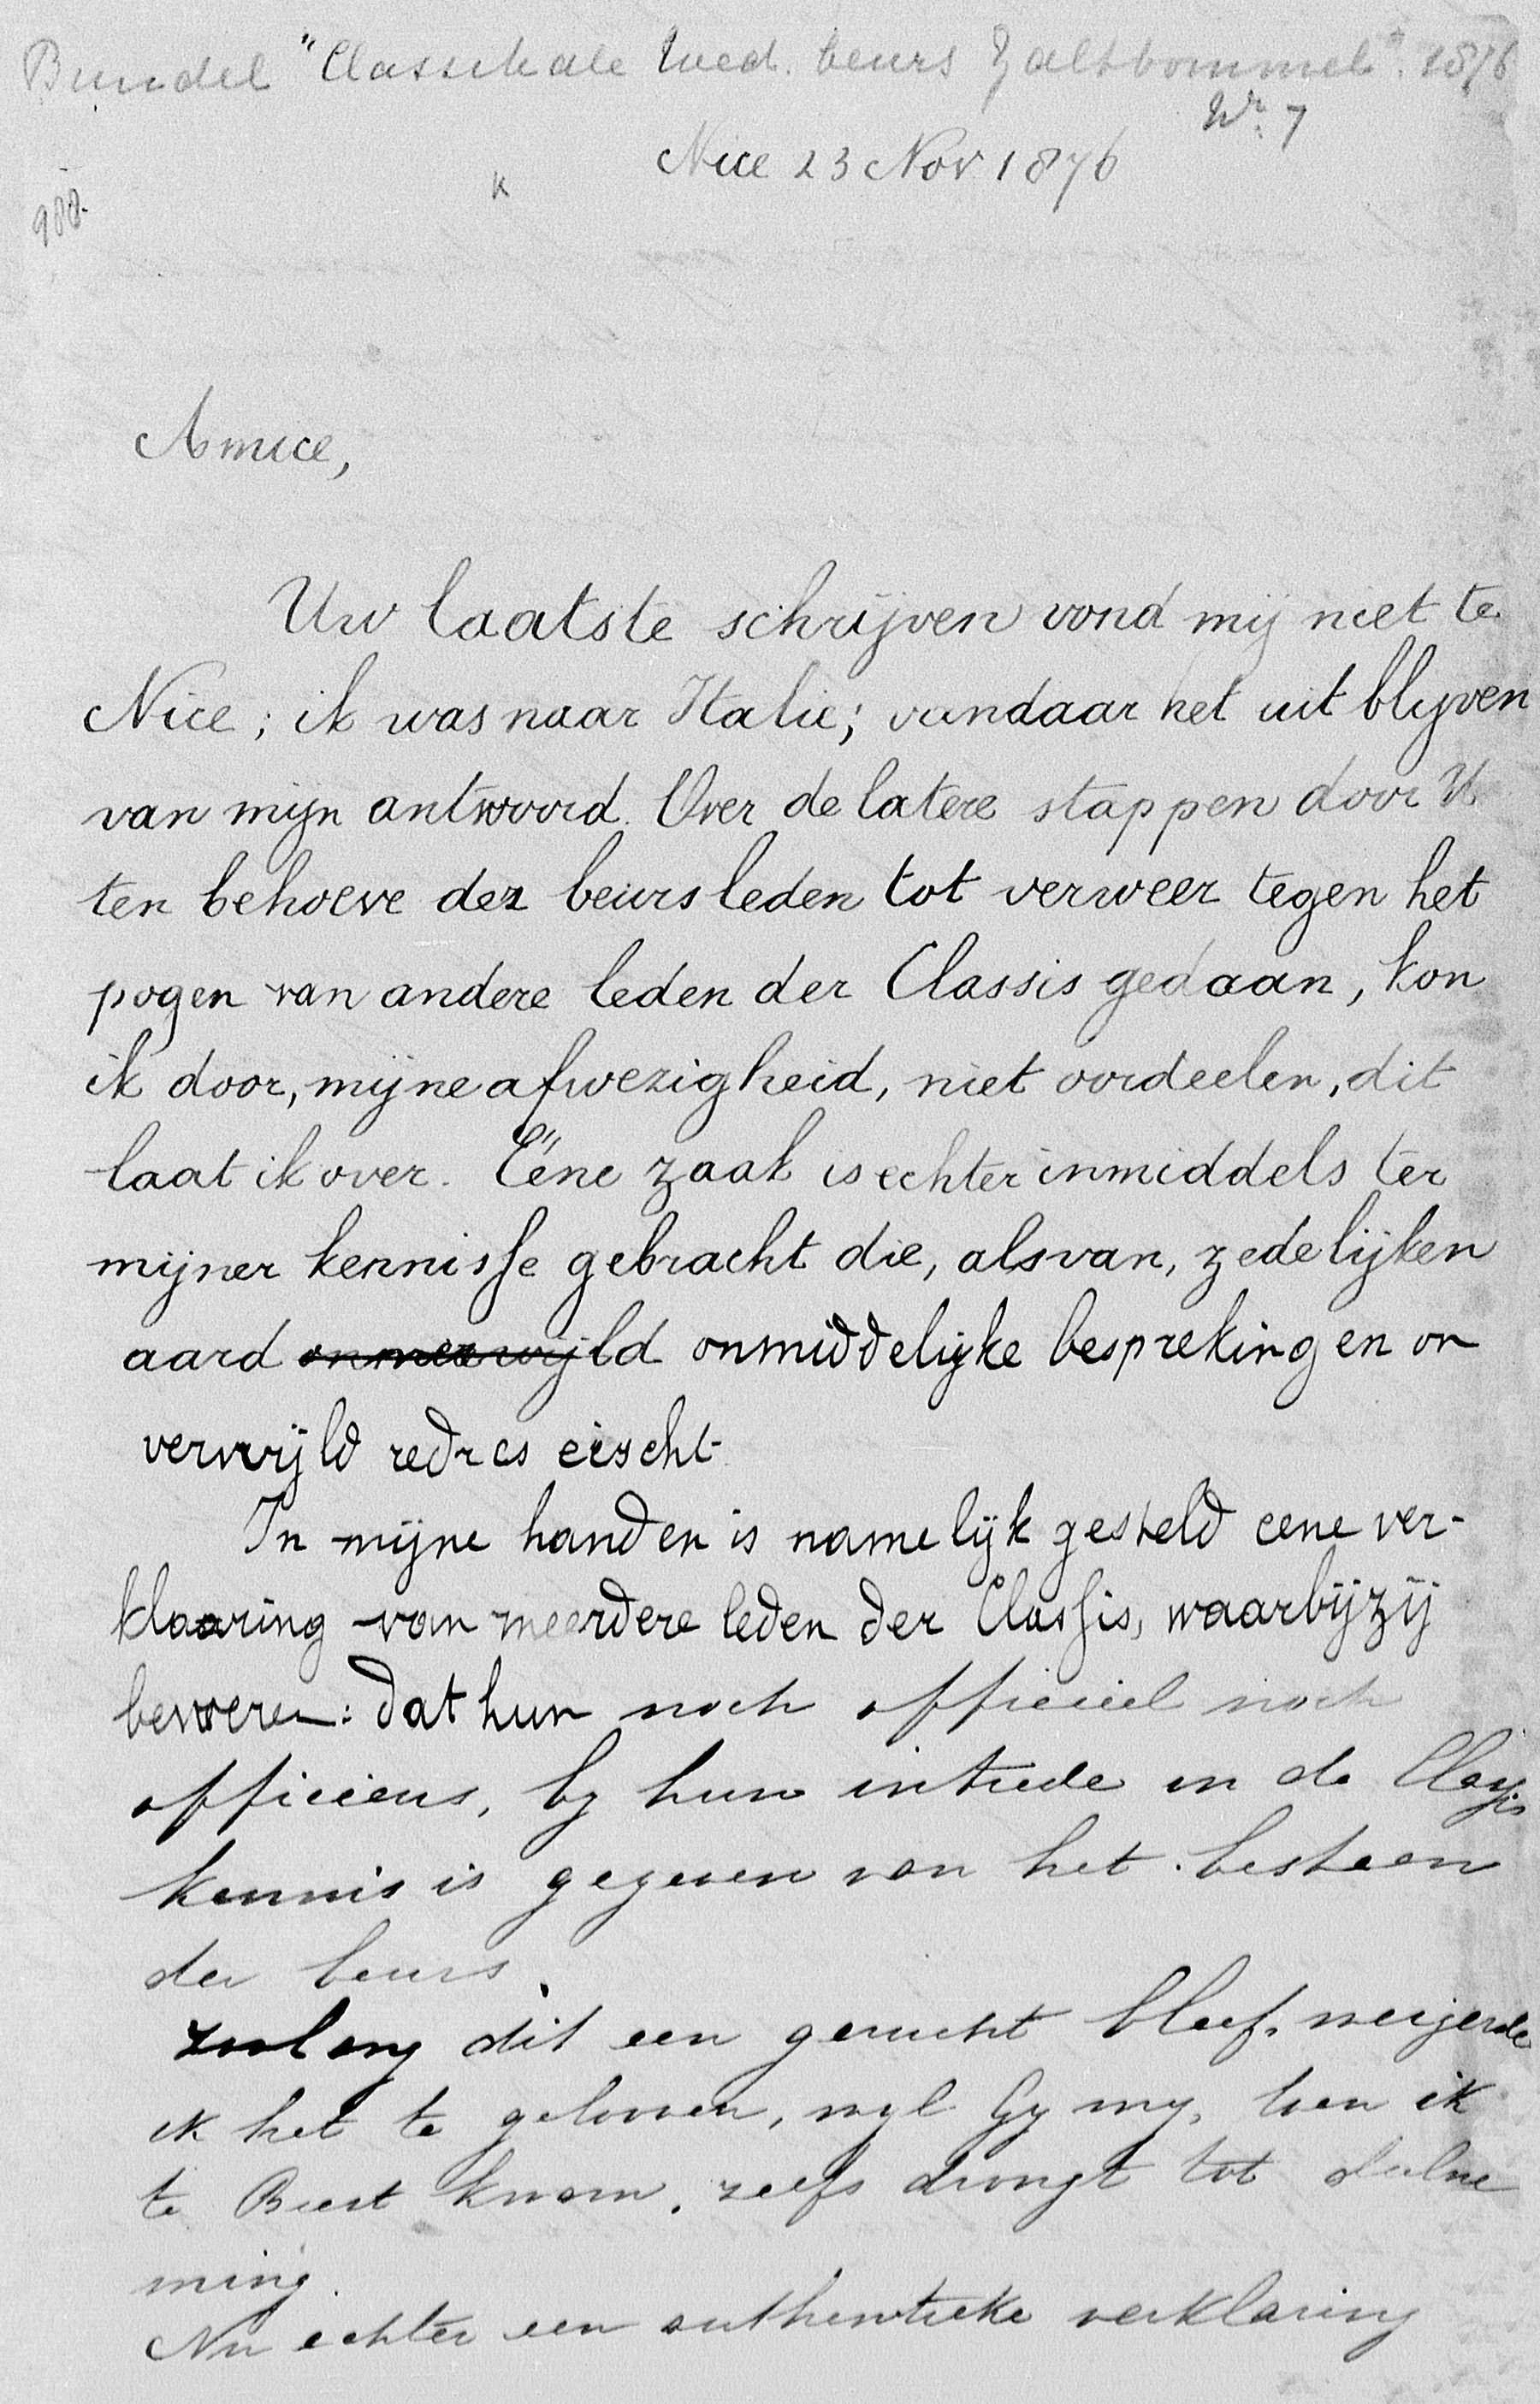 Bundel "Classikale Wed. beurs Zaltbommel". 1876
Nr. 7
Nice 23 Nov 1876
K
988.
Amice,
Uw laatste schrijven vond mij niet te
Nice; ik was naar Italie; vandaar het uit blyven
van mijn antwoord. Over de latere stappen door U
ten behoeve der beurs leden tot verweer tegen het
pogen van andere leden der Classis gedaan, kon
ik door, mijne afwezigheid, niet oordeelen, dit
laat ik over. Eéne zaak is echter inmiddels ter
mijner kennisse gebracht die, als van, zedelijken
aard onverwijld onmiddelijke bespreking en on
verwijld redres eischt.
In mijne handen is namelijk gesteld eene ver-
klaaring van meerdere leden der Classis, waarbij zij
beweren: dat hun noch officieel noch
officieus, by hun intrede in de Classis
kennis is gegeven van het bestaan
der beurs.
zoolang dit een gerucht bleef, weigerde
ik het te gelooven, wyl Gy my, toen ik
te Beest kwam, zelfs drongt tot deelne
ming.
Nu echter een authentieke verklaring